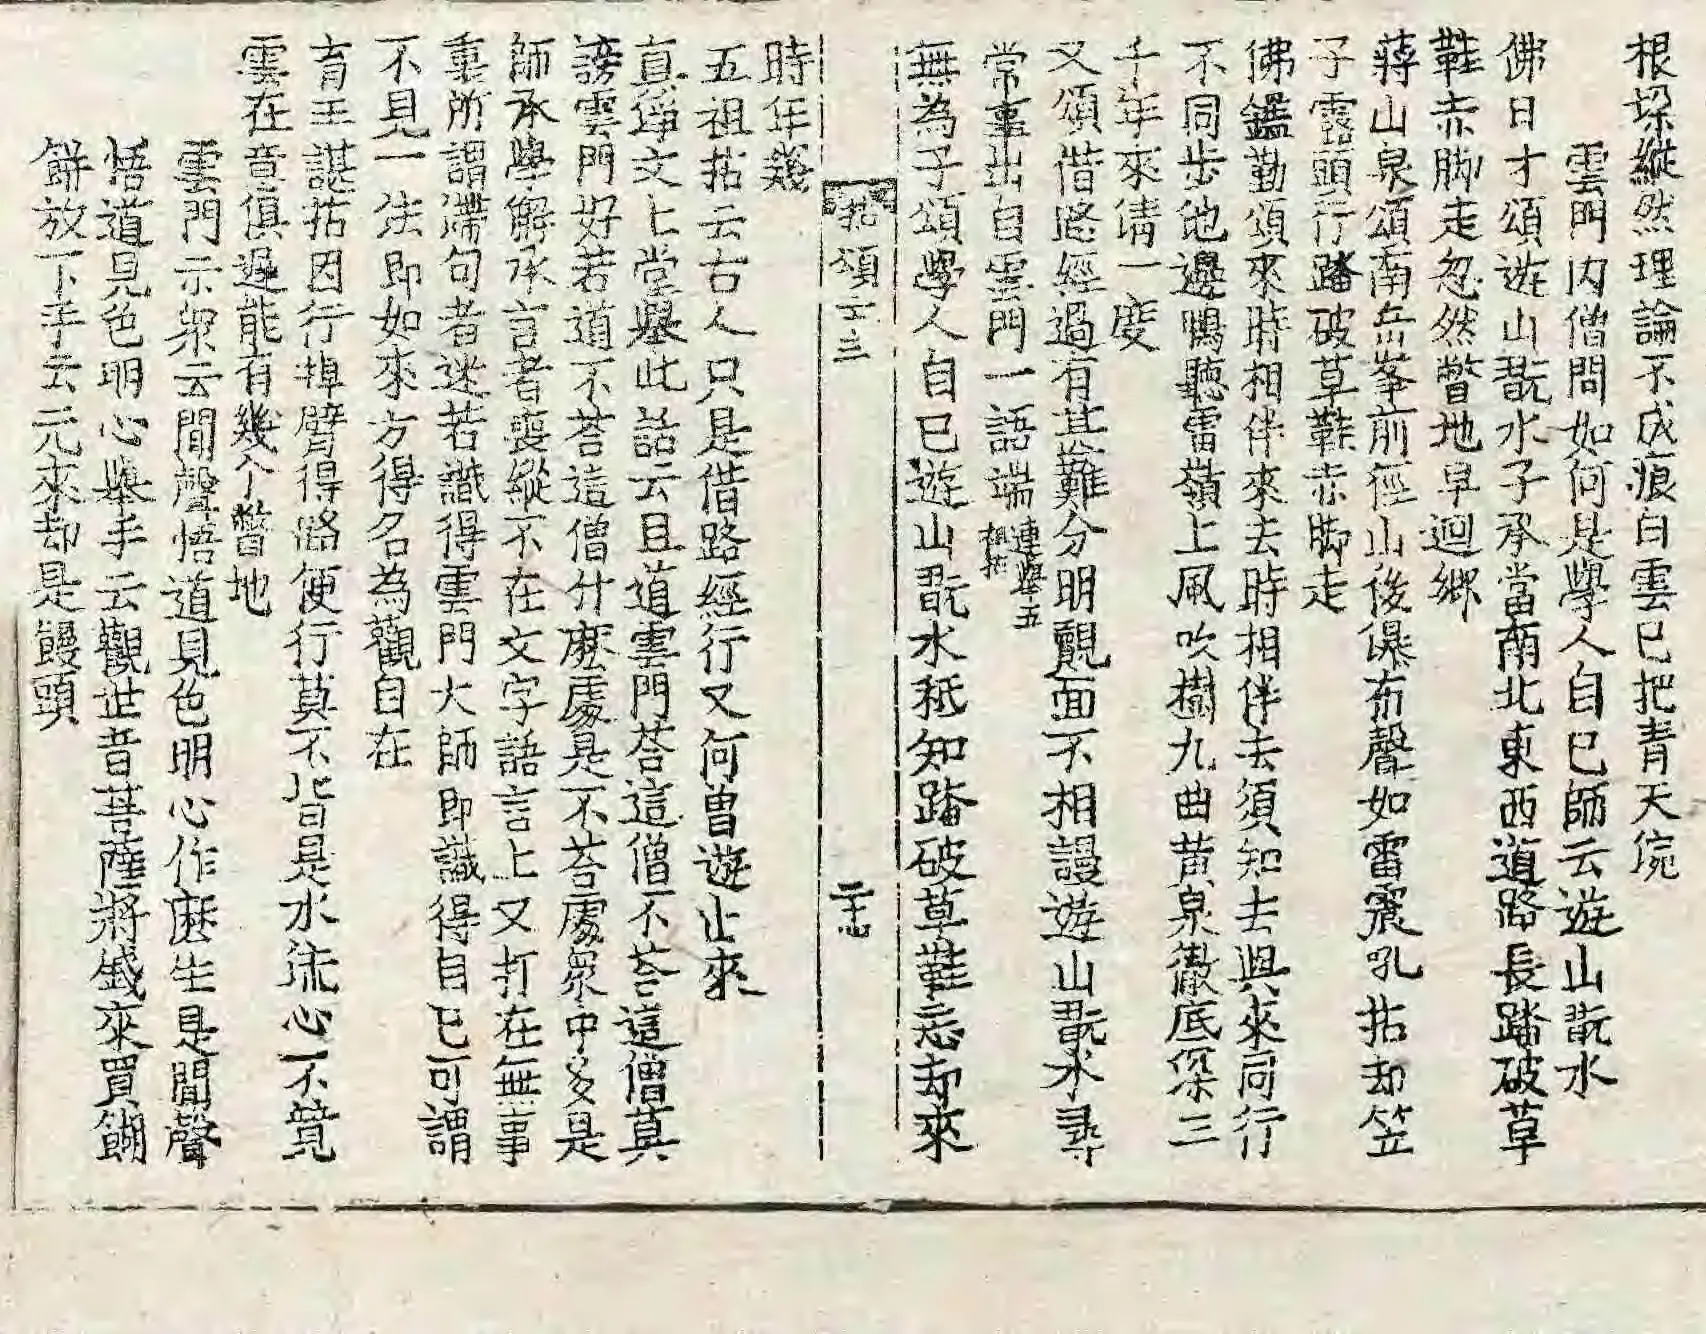 根垜縱然理論不成痕白雲已把青天㝹
雲門因僧問如何是學人自已師云遊山翫水
佛日才頌遊山翫水子承當南北東西道路長踏破草
鞋赤脚走忽然瞥地早迴鄉
蔣山泉頌南岳峯前徑山後瀑布聲如雷震吼拈却笠
子露頭行踏破草鞋赤脚走
佛鑑勤頌來時相伴來去時相伴去須知去與來同行
不同步他邊鴨聽雷嶺上風吹樹九曲黃泉徹底深三
千年來淸一度
又頌借路經過有甚難分明覿面不相謾遊山翫水尋
常事出自雲門一語端連擧五祖拈
無為子頌學人自已遊山翫水秖知踏破草鞋忘却來
拈頌十三
二十四
時年幾
五祖拈云古人只是借路經行又何曾遊止來
真淨文上堂擧此話云且道雲門荅這僧不荅這僧莫
謗雲門好若道不荅這僧什麽處是不荅處衆中多是
師承學解承言者喪縱不在文字語言上又打在無事
裏所謂滯句者迷若識得雲門大師即識得自已可謂
不見一法即如來方得名為觀自在
育王諶拈因行掉臂得路便行莫不皆是水流心不競
雲在意俱遲能有幾个瞥地
雲門示衆云聞聲悟道見色明心作麽生是聞聲
悟道見色明心擧手云觀世音菩薩將錢來買餬
餅放下手云元來却是饅頭